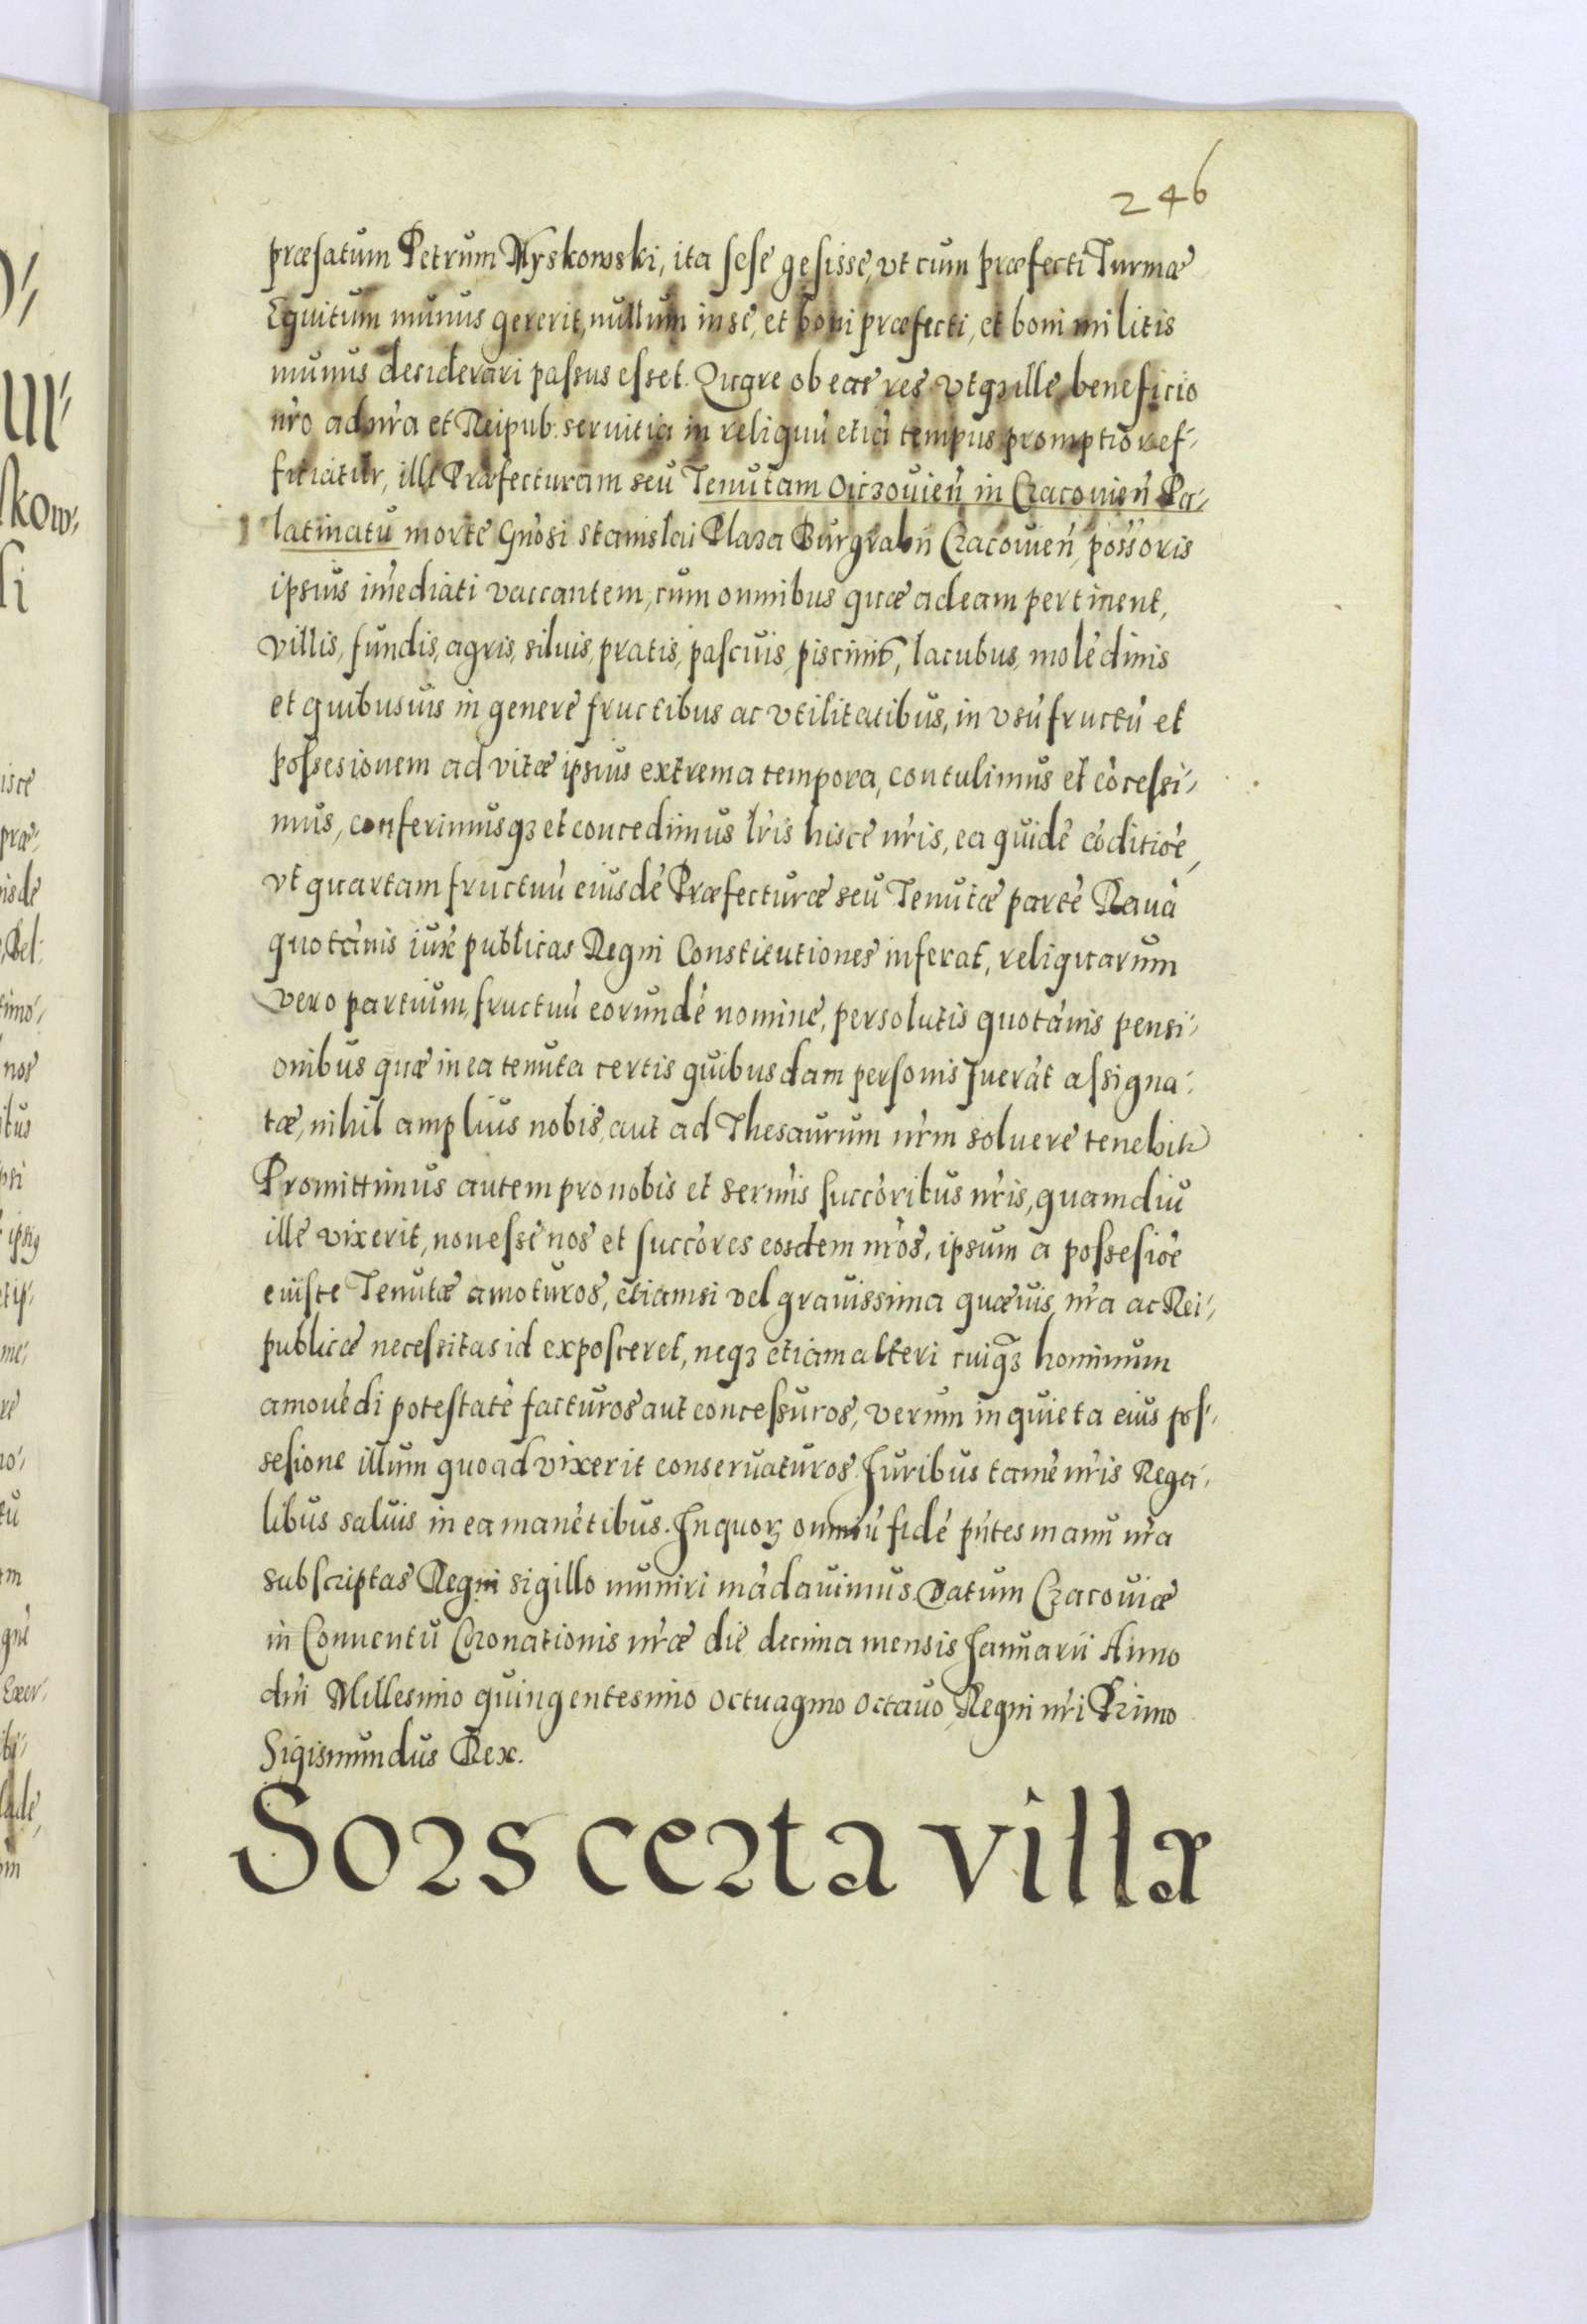 246
præfatum Petrum Myskowski, ita sese gesisse, vt cum præfecti Turmæ
Equitum munus gererit, nullum in se, et boni præfecti, et boni militis
munus desiderari passus esset. Quare ob eas res vtqȝ ille beneficio
nr̃o ad nr̃a et Reipub: seruitia in reliquũ etiã tempus promptior ef-
ficiatur, illi Præfecturam seu Tenutam Oiczouień in Czacouień Pa-
latinatu morte Gnõsi Stanislai Plaza Burgrabii Czacouień, possõris
ipsius im̃ediati vaccantem, cum omnibus quæ ad eam pertinent,
villis, fundis, agris, siluis, pratis, pascuis, piscinis, lacubus, molẽdinis
et quibusuis in genere fructibus ac vtilitatibus, in vsũfructũ et
possesionem ad vitæ ipsius extrema tempora, contulimus et cõcessi-
mus, conferimusqȝ et concedimus lr̃is hisce nr̃is, ea quidẽ cõditiõe,
vt quartam fructuũ eiusdẽ Præfecturæ seu Tenutæ partẽ Rauã
quotãnis iux̃ publicas Regni Constitutiones inferat, reliquarum
vero partium, fructuũ eorundẽ nomine, persolutis quotãnis pensi-
onibus quæ in ea tenuta certis quibusdam personis fuerãt assigna-
tæ, nihil amplius nobis, aut ad Thesaurum nr̃m soluere tenebitꝛ
Promittimus autem pro nobis et serm̃is succõribus nr̃is, quamdiu
ille vixerit, non esse nos et succõres eosdem nr̃os, ipsum a possesiõe
euiste Tenutæ amoturos, etiamsi vel grauissima quæuis, nr̃a ac Rei-
publicæ necessitas id exposceret, neqȝ etiam alteri cuiq̃ȝ hominum
amouẽdi potestatẽ facturos aut concessuros, verum in quieta eius pos-
sesione illum quoad vixerit conseruaturos. Juribus tamẽ nr̃is Rega-
libus saluis in ea manẽtibus. In quoꝝ omniũ fidẽ pñtes manu nr̃a
subscriptas Regni sigillo muniri mãdauimus. Datum Czacouiæ
in Conuentu Coronationis nr̃æ die decima mensis Januarii Anno
dñi Millesimo quingentesimo octuagmo octauo, Regni nr̃i Primo
Sigismundus Rex.
Sors certa villæ